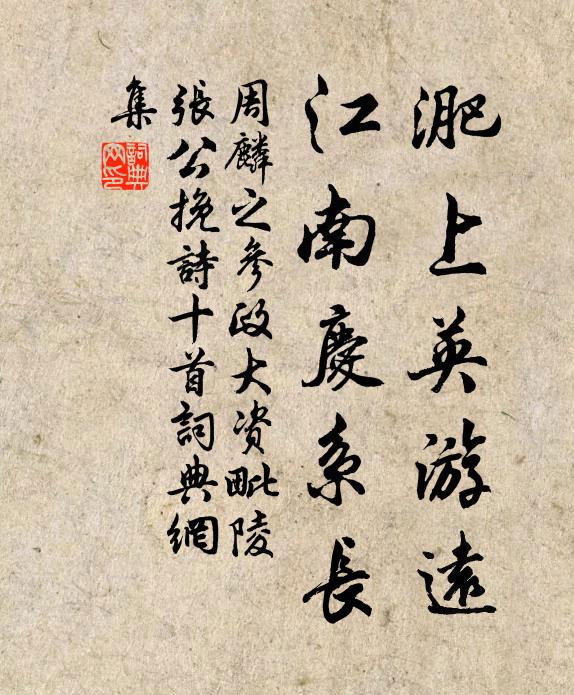 淝上英游遠
江南慶系長
周麟之參政大资毗陵
張公挽詩十首詞典網
集
詞典
网印